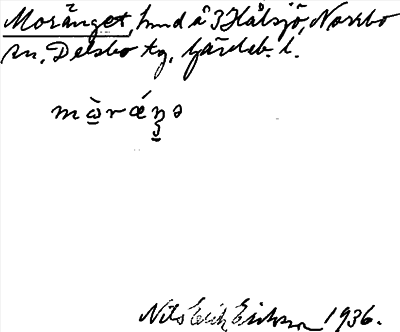 Moränget, hmd å 3 Hålsjö, Norrbo
sn, Delsbo tg, Gävleb. l.
mὼràŋ̱ə
Nils Erik Eriksson 1936.